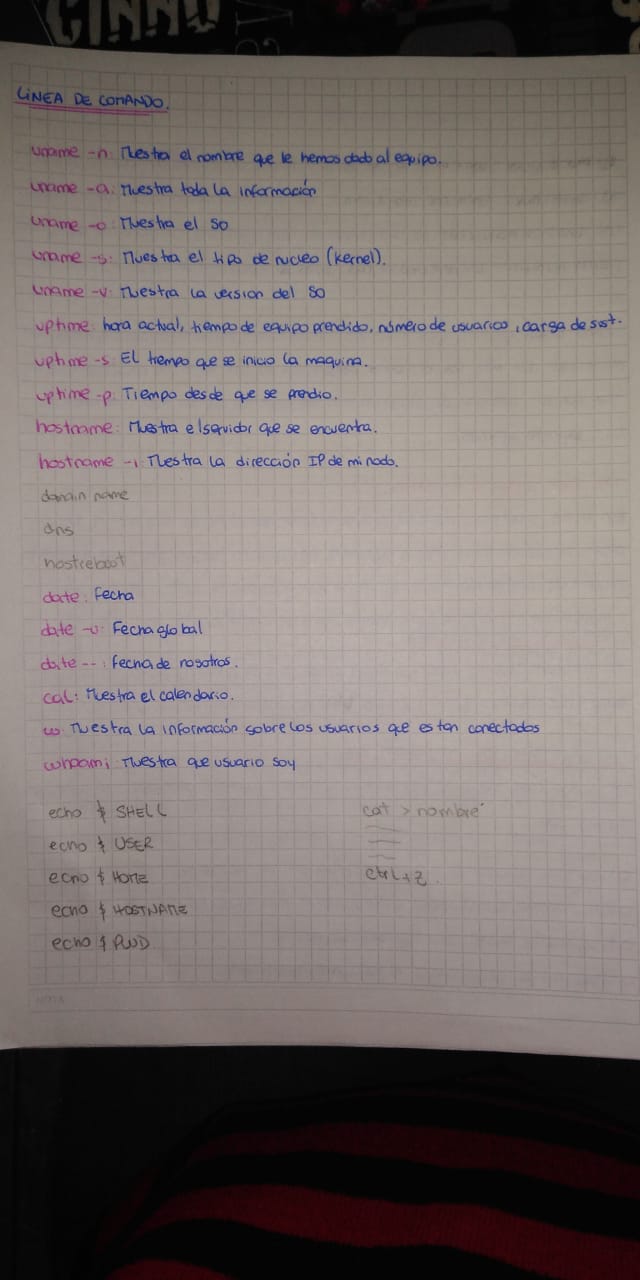 LINEA DE COMANDO.
uname -n: Muestra el nombre que le hemos dado al equipo.
uname -a: Muestra toda la información
uname -o: Muestra el SO
uname -s: Muestra el tipo de nucleo (kernel).
uname -v: Muestra la version del SO
uptime: hora actual, tiempo de equipo prendido, número de usuarios, carga de sist.
uptime -s: El tiempo que se inicio la maquina.
uptime -p: Tiempo desde que se prendio.
hostname: Muestra el servidor que se encuentra.
hostname -i: Muestra la dirección IP de mi nodo.
domain name
dns
hostreboot
date: Fecha
date -u: Fecha global
date --: fecha de nosotros.
cal: Muestra el calendario.
w: Muestra la información sobre los usuarios que estan conectados
whoami: Muestra que usuario soy
echo $ SHELL cat > nombre
echo $ USER
echo $ HOME ctrl+z
echo $ HOSTNAME
echo $ PWD